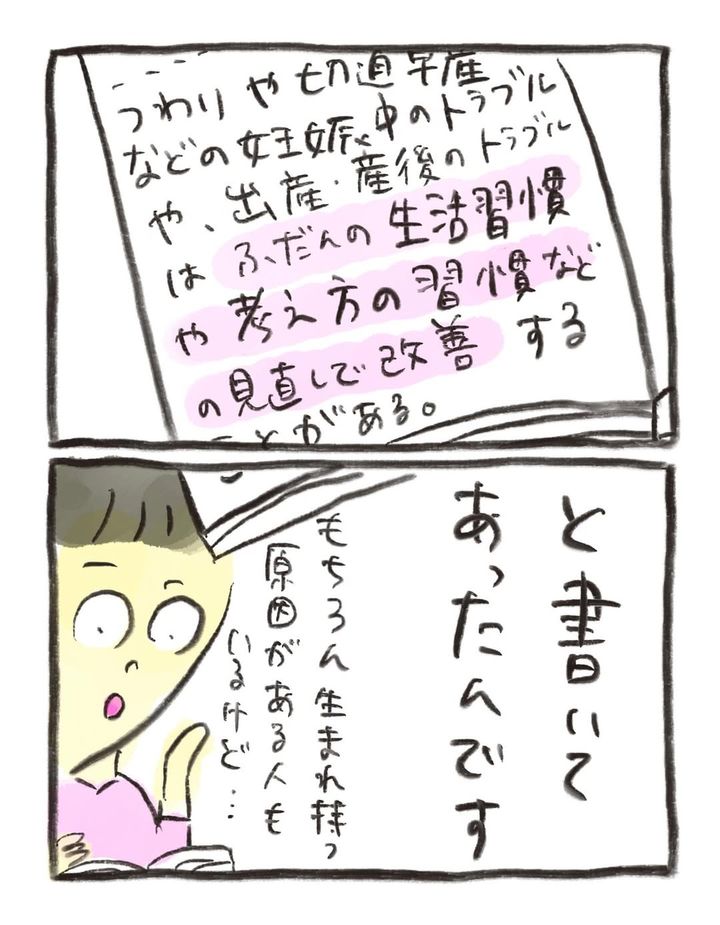 つわりや切迫早産
などの妊娠中のトラブル
や、出産・産後のトラブル
は ふだんの生活習慣
や考え方の習慣など
の見直しで改善する
ことがある。
と書いて
あったんです
もちろん生まれ持つ
原因がある人も
いるけど…